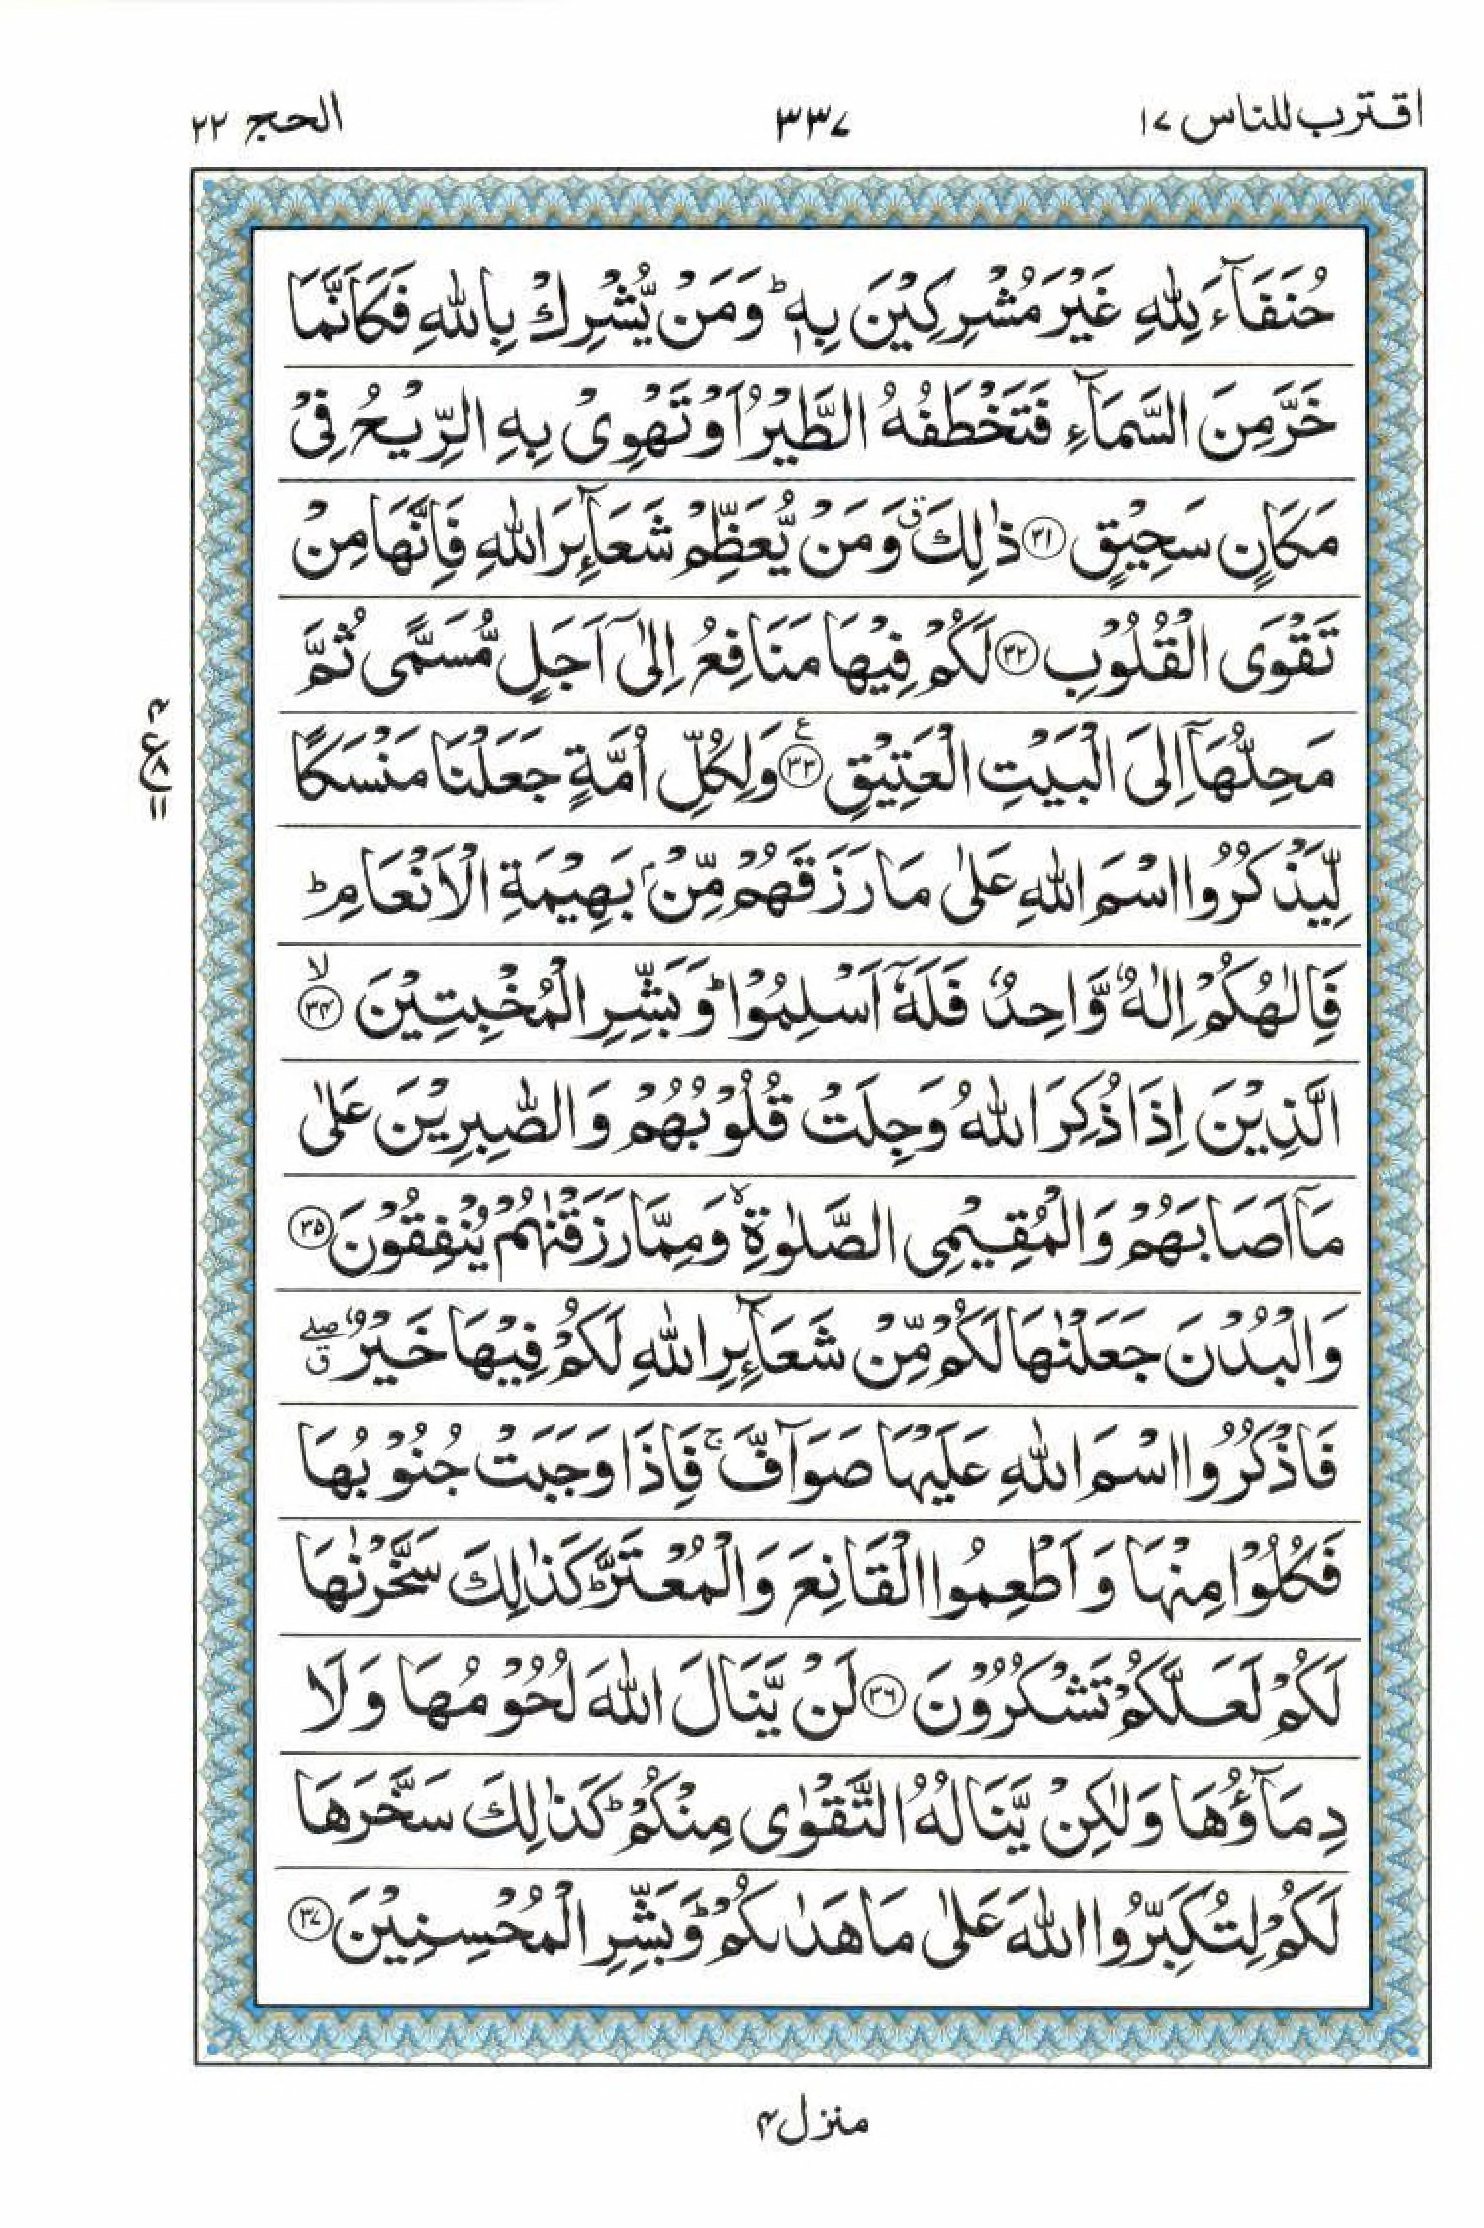 اقترب للناس ١٧
٣٣٧
الحج ٢٢
حُنَفَآءَ لِلّٰهِ غَيْرَ مُشْرِكِيْنَ بِهٖ ؕ وَمَنْ يُّشْرِكْ بِاللّٰهِ فَكَاَنَّمَا
خَرَّ مِنَ السَّمَآءِ فَتَخْطَفُهُ الطَّيْرُ اَوْ تَهْوِىْ بِهِ الرِّيْحُ فِىْ
مَكَانٍ سَحِيْقٍ ﴿٣١﴾ ذٰلِكَ ۗ وَمَنْ يُّعَظِّمْ شَعَآئِرَ اللّٰهِ فَاِنَّهَا مِنْ
تَقْوَى الْقُلُوْبِ ﴿٣٢﴾ لَكُمْ فِيْهَا مَنَافِعُ اِلٰٓى اَجَلٍ مُّسَمًّى ثُمَّ
مَحِلُّهَآ اِلَى الْبَيْتِ الْعَتِيْقِ ﴿٣٣﴾ ع وَلِكُلِّ اُمَّةٍ جَعَلْنَا مَنْسَكًا
لِّيَذْكُرُوا اسْمَ اللّٰهِ عَلٰى مَا رَزَقَهُمْ مِّنْۢ بَهِيْمَةِ الْاَنْعَامِ ؕ
فَاِلٰهُكُمْ اِلٰهٌ وَّاحِدٌ فَلَهٗٓ اَسْلِمُوْا ؕ وَبَشِّرِ الْمُخْبِتِيْنَ ﴿٣٤﴾ ۙ
الَّذِيْنَ اِذَا ذُكِرَ اللّٰهُ وَجِلَتْ قُلُوْبُهُمْ وَالصّٰبِرِيْنَ عَلٰى
مَآ اَصَابَهُمْ وَالْمُقِيْمِى الصَّلٰوةِ ۙ وَمِمَّا رَزَقْنٰهُمْ يُنْفِقُوْنَ ﴿٣٥﴾
وَالْبُدْنَ جَعَلْنٰهَا لَكُمْ مِّنْ شَعَآئِرِ اللّٰهِ لَكُمْ فِيْهَا خَيْرٌ ۖ ق
فَاذْكُرُوا اسْمَ اللّٰهِ عَلَيْهَا صَوَآفَّ ۚ فَاِذَا وَجَبَتْ جُنُوْبُهَا
فَكُلُوْا مِنْهَا وَاَطْعِمُوا الْقَانِعَ وَالْمُعْتَرَّ ؕ كَذٰلِكَ سَخَّرْنٰهَا
لَكُمْ لَعَلَّكُمْ تَشْكُرُوْنَ ﴿٣٦﴾ لَنْ يَّنَالَ اللّٰهَ لُحُوْمُهَا وَلَا
دِمَآؤُهَا وَلٰكِنْ يَّنَالُهُ التَّقْوٰى مِنْكُمْ ؕ كَذٰلِكَ سَخَّرَهَا
لَكُمْ لِتُكَبِّرُوا اللّٰهَ عَلٰى مَا هَدٰىكُمْ ؕ وَبَشِّرِ الْمُحْسِنِيْنَ ﴿٣٧﴾
منزل ٤